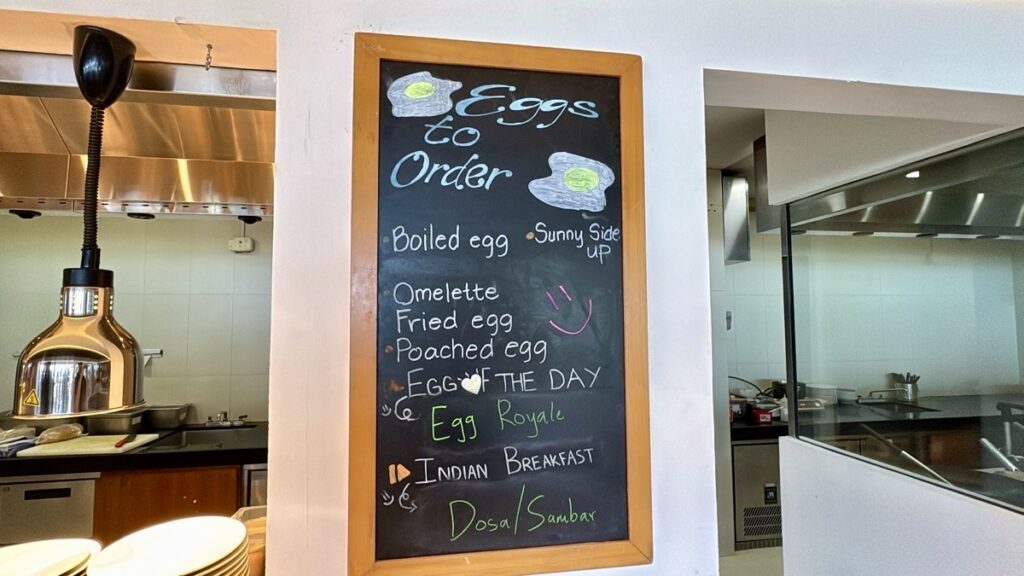 Eggs
to
Order
Boiled egg
Sunny Side
UP
Omelette
Fried egg
Poached egg
EGG OF THE DAY
Egg Royale
INDIAN BREAKFAST
Dosa/Sambar